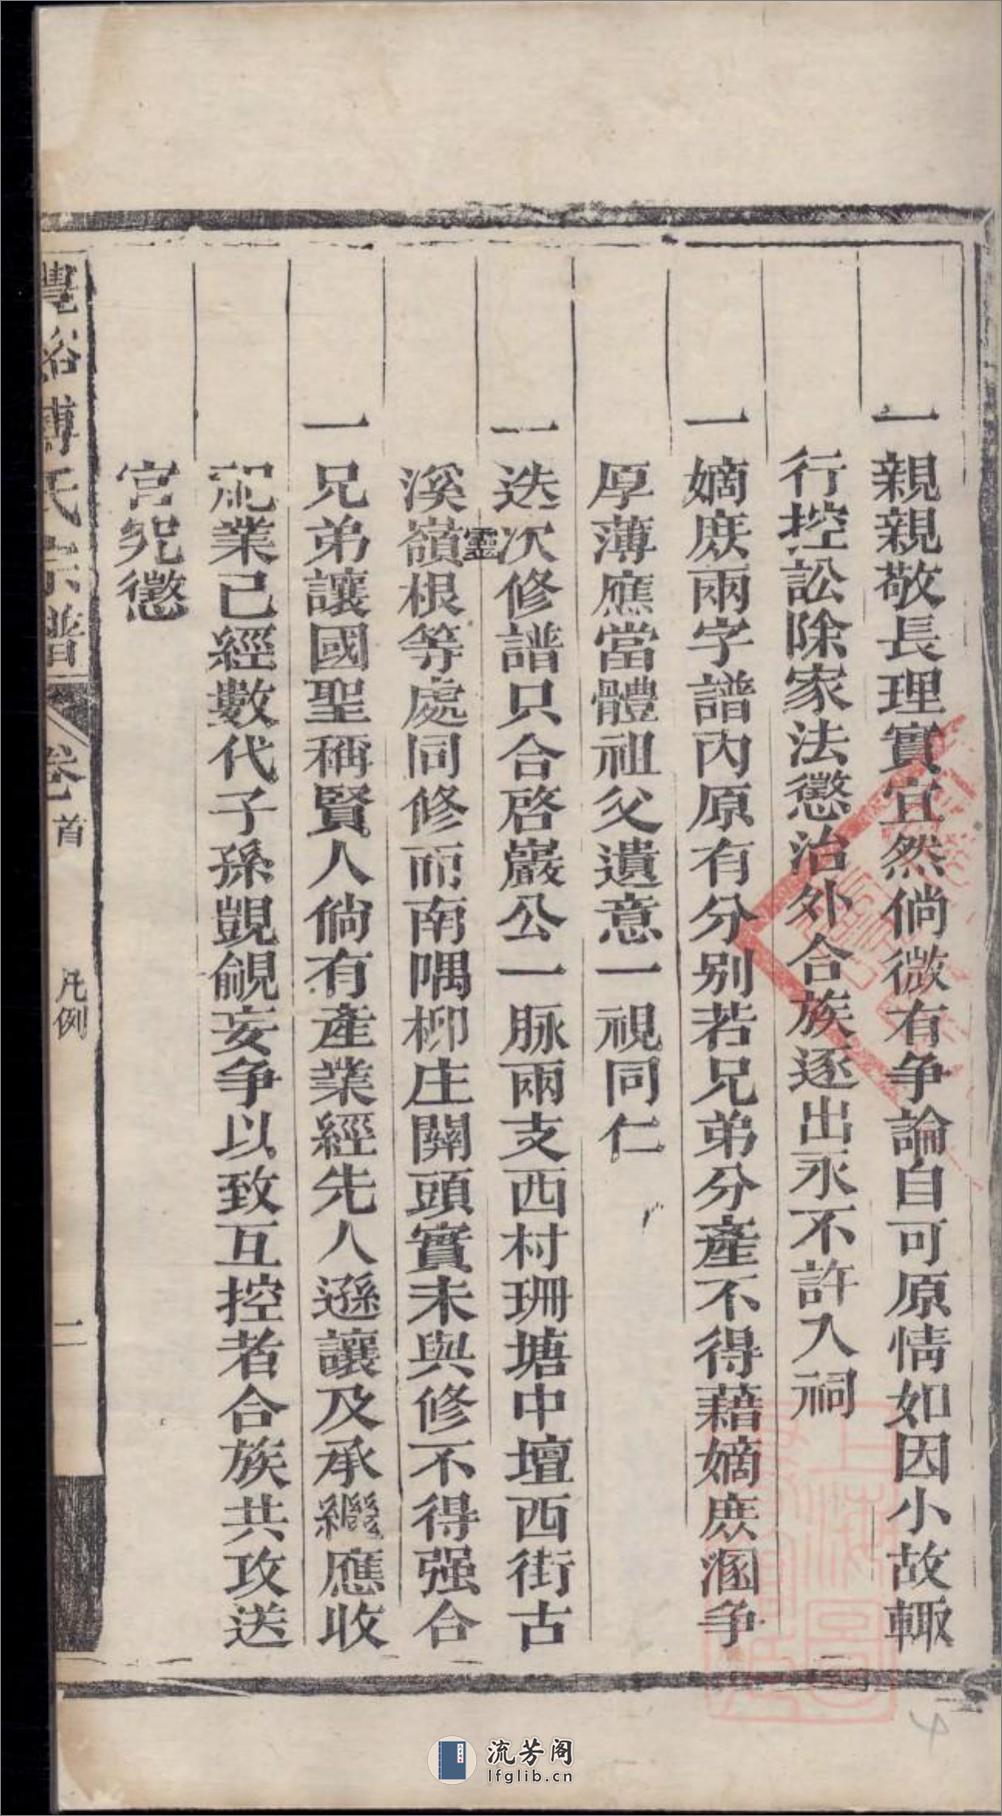 一親親敬長理實宜然倘微有争論自可原情如因小故輙
行控訟除家法懲治外合族逐出永不許入祠
一嫡庶兩字譜內原有分别若兄弟分產不得藉嫡庶溷争
厚薄應當體祖父遺意一視同仁
一迭次修譜只合啓巖公一脉兩支西村珊塘中壇西街古
靈
溪嶺根等處同修而南隅柳庄關頭實未與修不得强合
一兄弟讓國聖稱賢人倘有產業經先人遜讓及承繼應收
祀業已經數代子孫覬覦妄争以致互控者合族共攻送
官究懲
豊谷傅氏宗譜 卷首 凡例 二
上海圖書館藏
流芳阁
lfglib.cn